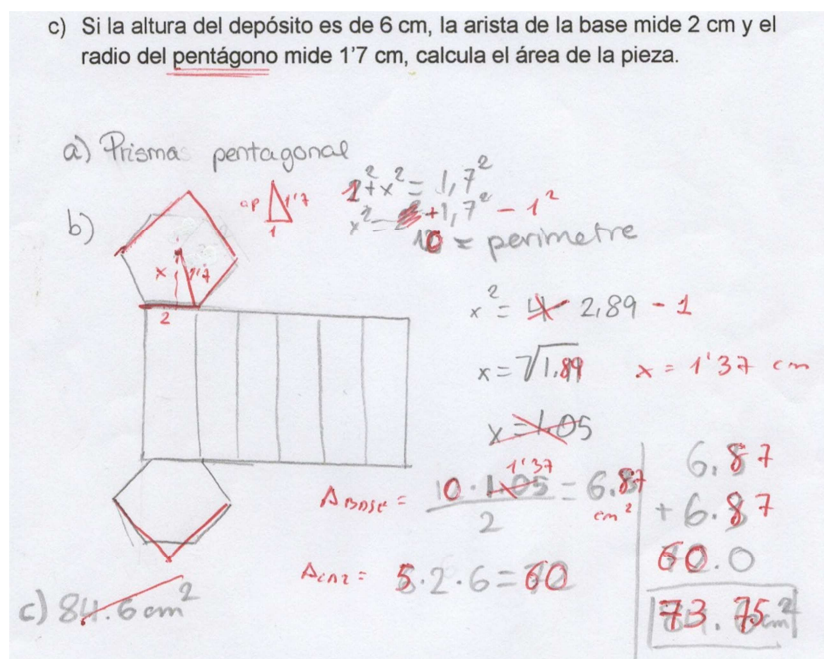 c) Si la altura del depósito es de 6 cm, la arista de la base mide 2 cm y el
radio del pentágono mide 1'7 cm, calcula el área de la pieza.
a) Prisma pentagonal
ap 1'7
1
x² = +1,7² - 1²
b)
10 = perimetre
x 1'7
2
x² = 2,89 - 1
x = √1.89 x = 1'37 cm
x = 1.05
1'37
A BASE = 10 · 1.05 / 2 = 6.87 cm²
6.87
+ 6.87
60.0
73.75 cm²
A CAR = 5 · 2 · 6 = 60
c) 84.6 cm²